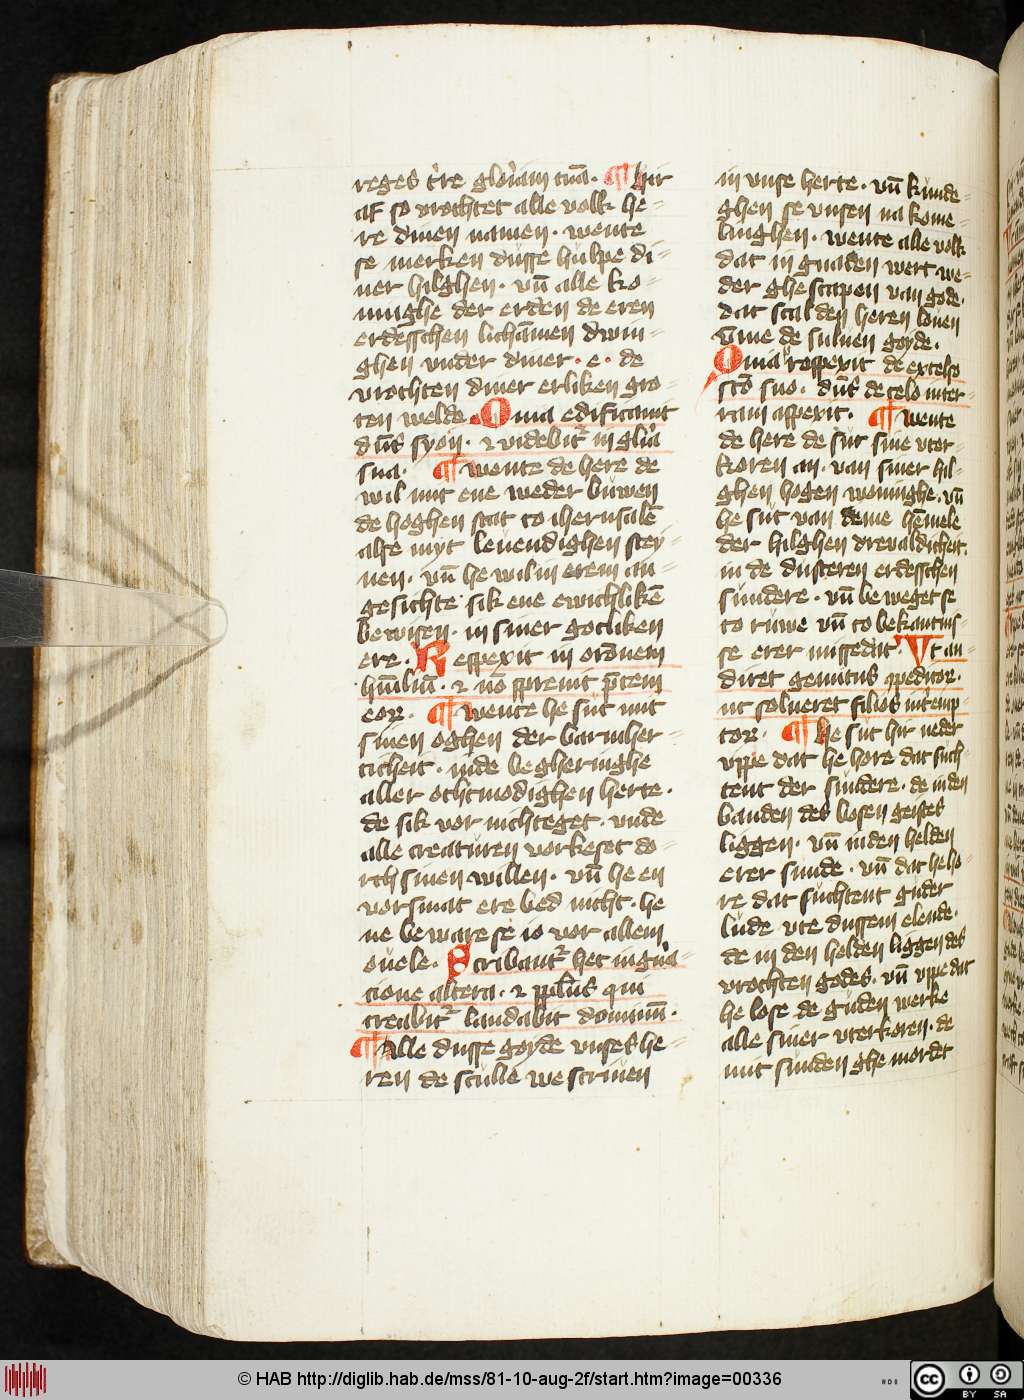 reges t're glor̄iam tuā. ¶ Hir
af so vrochtet alle volk he=
re dinen namen. wente
se merken dusse hulpe di=
ner hilghen. vn̄ alle ko=
ninghe der erden de eren
erdesschen lichāmen dwin=
ghen vnder diner. e. de
vrochten diner erliken gro=
ten welde. Qma edificauit
dn̄s syon. ⁊ videbit' in gl'ia
sua. ¶ wente de here de
wil mit ene weder buwen
de hoghen stat to iherusalē
alse myt leuendighen stey=
nen. vn̄ he wil in erem an=
gesichte sik ene ewichlikē
bewisen. in siner gotliken
ere. Respexit in or̄onem
hūiliū. ⁊ nō spreuit p̄cem
eor. ¶ wente he sut mit
sinen oghen der barmher=
ticheit. in de begheringhe
aller othmodighen herte.
de sik vor nichteget. vnde
alle creaturen vorkeset do=
rch sinen willen. vn̄ he en
vorsmat ere bed nicht. he
ne beware se io vor allem
ouele. Scribant' hec in gn'a=
cione altera. ⁊ ppl'us qui
creabit' laudabit dominū.
¶ Alle dusse goyde vnses he=
ren de sculle we scriuen
in vnse herte. vn̄ kunde=
ghen se vnsen na kome=
linghen. wente alle volk
dat in gnaden wert we=
der ghescapen van gode.
dat scal den heren louen
vme de suluen goyde.
Qma rospexit de excelso
sctō suo. dn̄s de celo in ter=
ram aspexit. ¶ wente
de here de sut sine vter=
koren an. van siner hil=
ghen hogen woninghe. vn̄
he sut van deme hēmele
der hilghen dreualdicheit.
in de dusteren erdesschen
sundere. vn̄ beweget se
to ruwe vn̄ to bekantnis=
se erer missedat. Vt au=
diret gemitus 9peditor.
ut solueret filios int'emp=
tor. ¶ he sut hir neder
vppe dat he hore dat such=
tent der sundere. de in den
banden des bosen geistes
liggen. vn̄ in den helden
erer sunde. vn̄ dat he ho=
re dat suchtent guder
lude vte dussem elende.
de in den helden liggen des
vrochten godes. vn̄ vppe dat
he lose de guden werke
alle siner vterkoren. de
mit sunden ghe mordet
© HAB http://diglib.hab.de/mss/81-10-aug-2f/start.htm?image=00336
cc BY SA